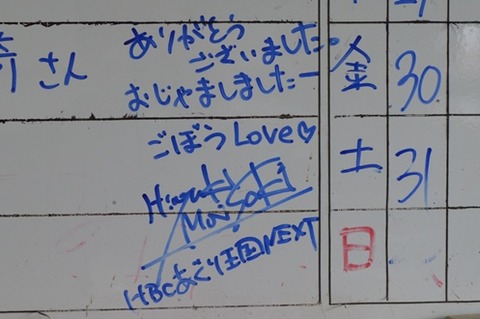 さん
ありがとう
ございました。
おじゃましましたー
金 30
ごぼうLove♡
土 31
日
HBCあぐり王国NEXT